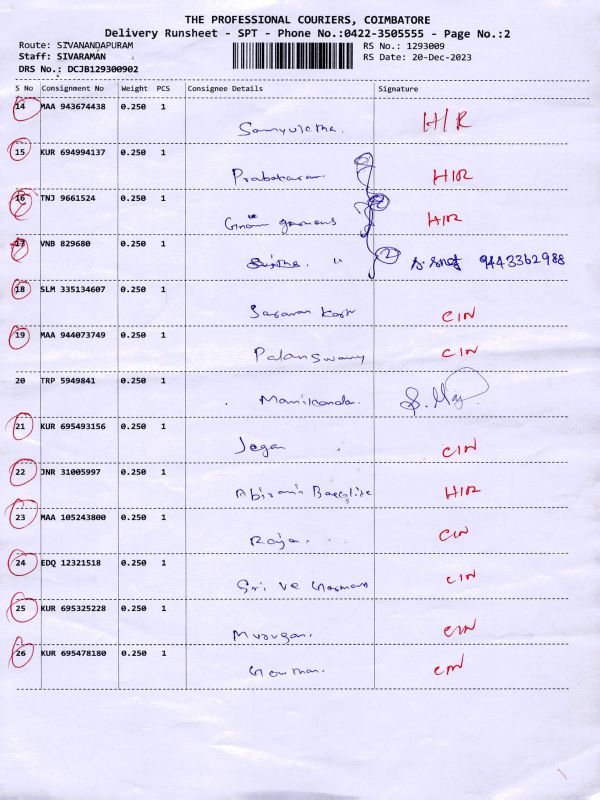 THE PROFESSIONAL COURIERS, COIMBATORE
Delivery Runsheet - SPT - Phone No.:0422-3505555 - Page No.:2
Route: SIVANANDAPURAM RS No.: 1293009
Staff: SIVARAMAN RS Date: 20-Dec-2023
DRS No.: DCJB129300902
S No Consignment No Weight PCS Consignee Details Signature
14 MAA 943674438 0.250 1
Samyuletha. H/R
15 KUR 694994137 0.250 1
Prabakaran. HIR
16 TNJ 9661524 0.250 1
garmens HIR
17 VNB 829680 0.250 1
" 2 9443362988
18 SLM 335134607 0.250 1
Saravan CIN
19 MAA 944073749 0.250 1
Palanswamy CIN
20 TRP 5949841 0.250 1
Manikanda.
21 KUR 695493156 0.250 1
Jegan CIN
22 JNR 31005997 0.250 1
Abirami HIR
23 MAA 105243800 0.250 1
Raja. CIN
24 EDQ 12321518 0.250 1
Sri Ve Garmens CIN
25 KUR 695325228 0.250 1
Murugan. CIN
26 KUR 695478180 0.250 1
Gowtham. CIN